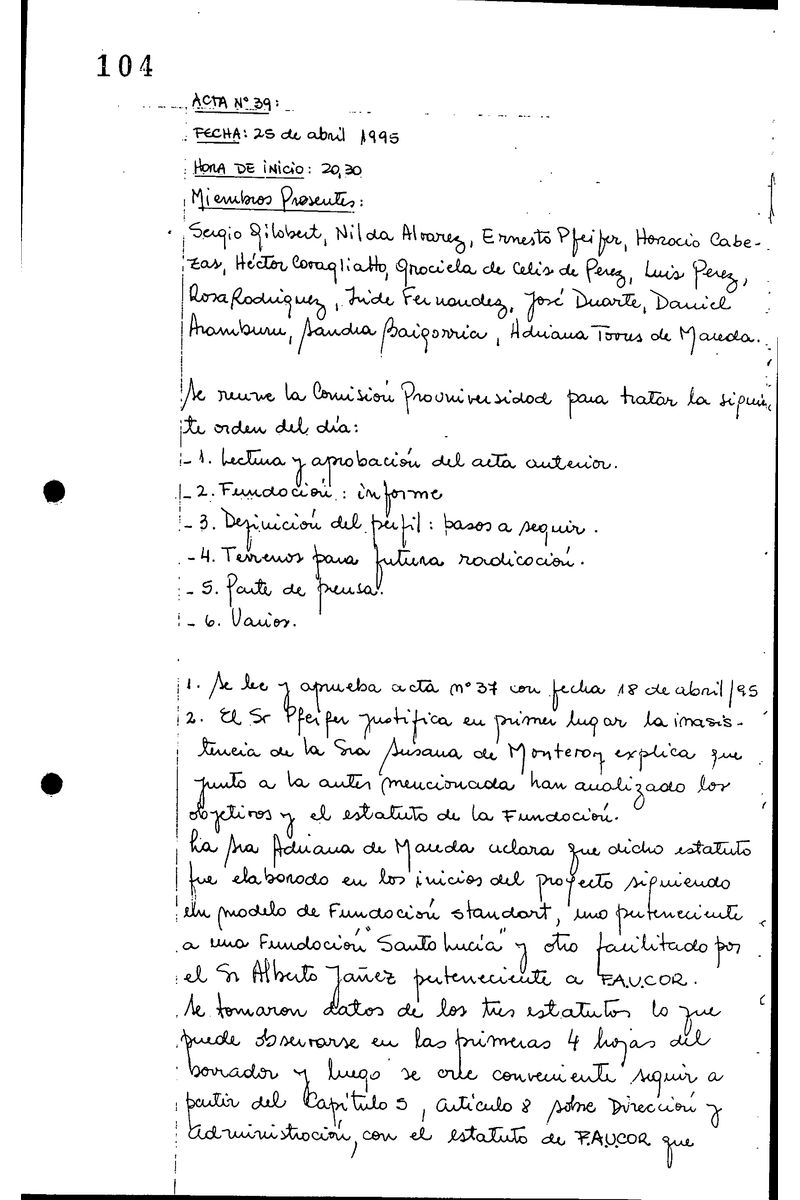 104
ACTA Nº 39:
FECHA: 25 de abril 1995
HORA DE inicio: 20,30
Miembros Presentes:
Sergio Gilobert, Nilda Alvarez, Ernesto Pfeifer, Horacio Cabe-
zas, Héctor Coragliatto, Graciela de Celis de Perez, Luis Perez,
Rosa Rodriguez, Iride Fernandez, José Duarte, Daniel
Aramburu, Sandra Baigorria, Adriana Torres de Maceda.
Se reune la Comisión Prouniversidad para tratar la siguien
te orden del día:
- 1. Lectura y aprobación del acta anterior.
- 2. Fundación: informe
- 3. Definición del perfil: pasos a seguir.
- 4. Terrenos para futura radicación.
- 5. Parte de prensa.
- 6. Varios.
1. Se lee y aprueba acta nº 37 con fecha 18 de abril/95
2. El Sr Pfeifer justifica en primer lugar la inasis-
tencia de la Sra Susana de Montero y explica que
junto a la antes mencionada han analizado los
objetivos y el estatuto de la Fundación.
La Sra Adriana de Maceda aclara que dicho estatuto
fue elaborado en los inicios del proyecto siguiendo
un modelo de Fundación standart, uno perteneciente
a una Fundación "Santa Lucía" y otro facilitado por
el Sr Alberto Yañez perteneciente a F.A.U.COR.
Se tomaron datos de los tres estatutos lo que
puede observarse en las primeras 4 hojas del
borrador y luego se cree conveniente seguir a
partir del Capítulo 5, artículo 8 sobre Dirección y
Administración, con el estatuto de F.A.U.COR que